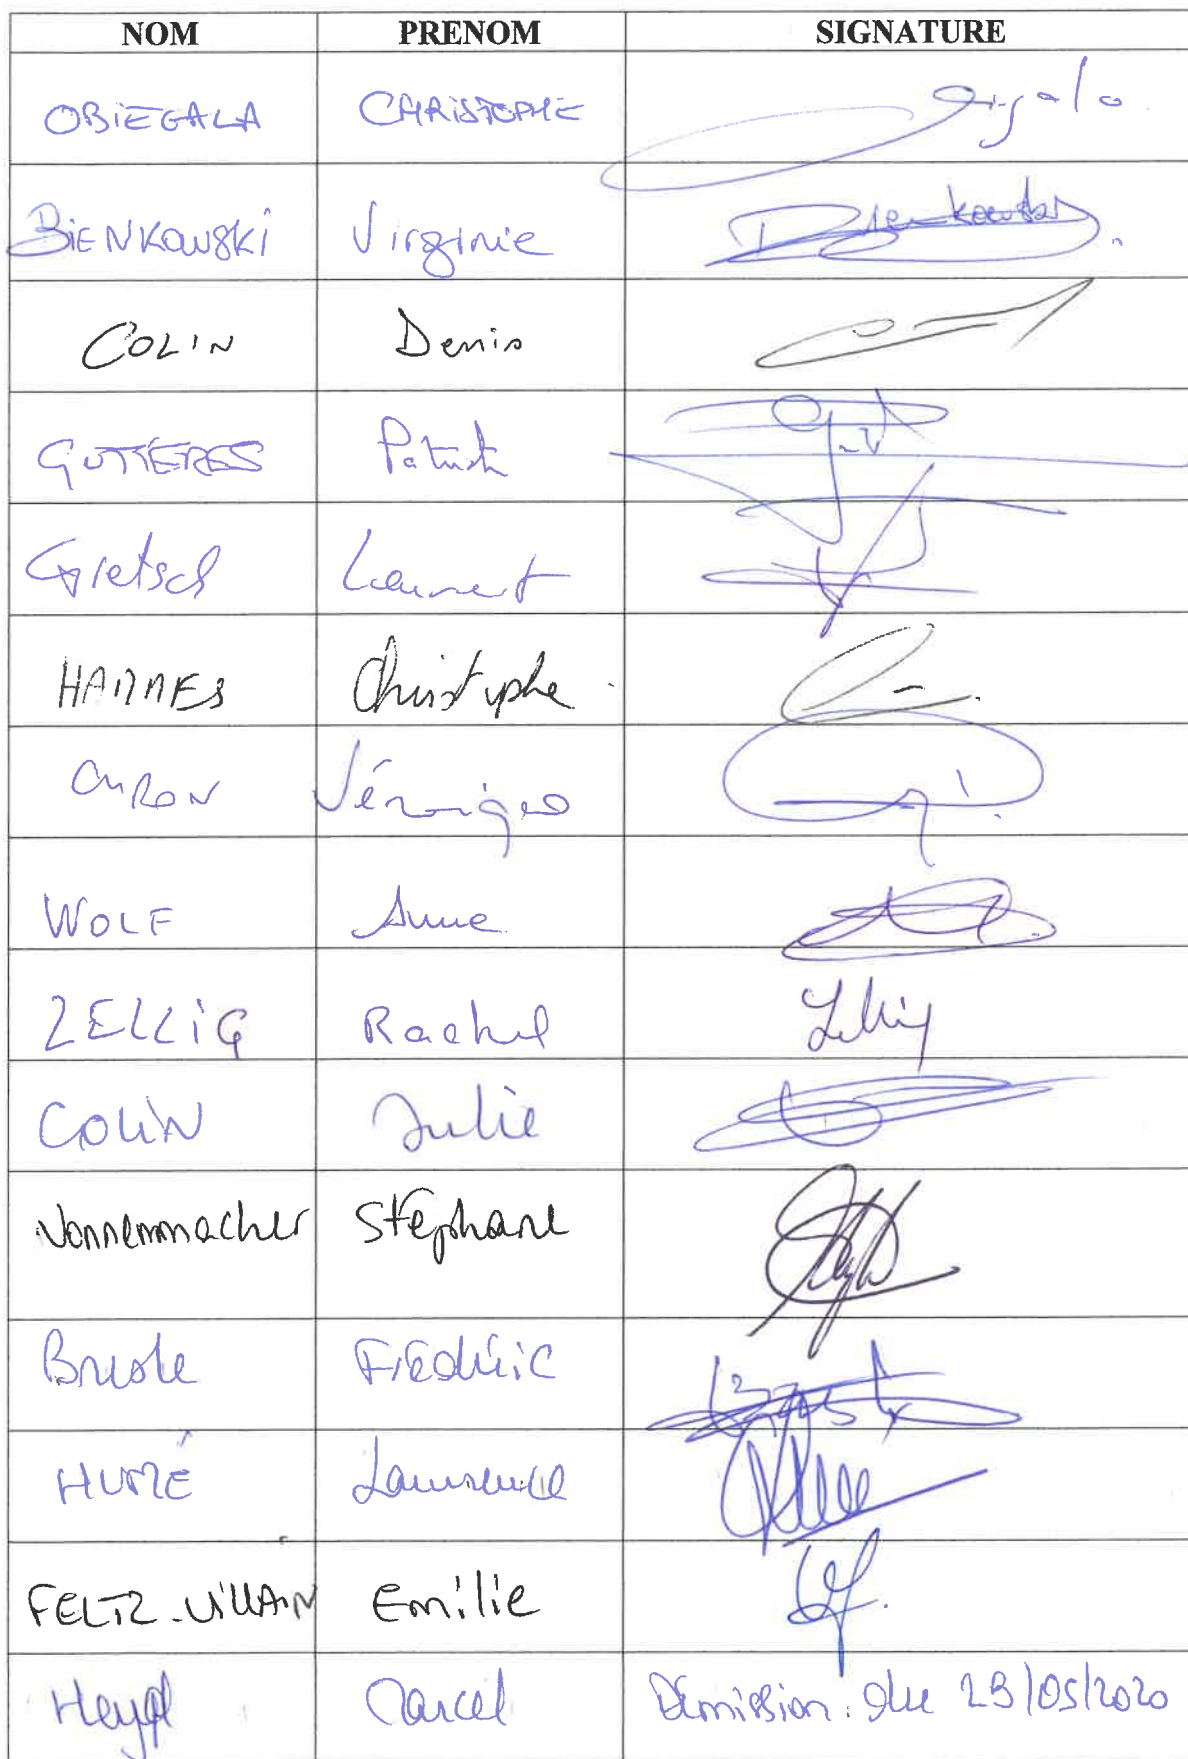 NOM PRENOM SIGNATURE
OBIEGALA CHRISTOPHE
BIENKOWSKI Virginie Bienkowski
COLIN Denis
GUTTERES Patrick
Gretsch Laurent
HAMMES Christophe
CURON Véronique
WOLF Anne
ZELLIG Rachel Zellig
COLIN Julie
Vonnemmacher Stéphane
Brusle Frédéric
HUMÉ Laurence
FELTZ-VILLAIN Emilie
Heydel Marcel Démission: due 29/05/2020